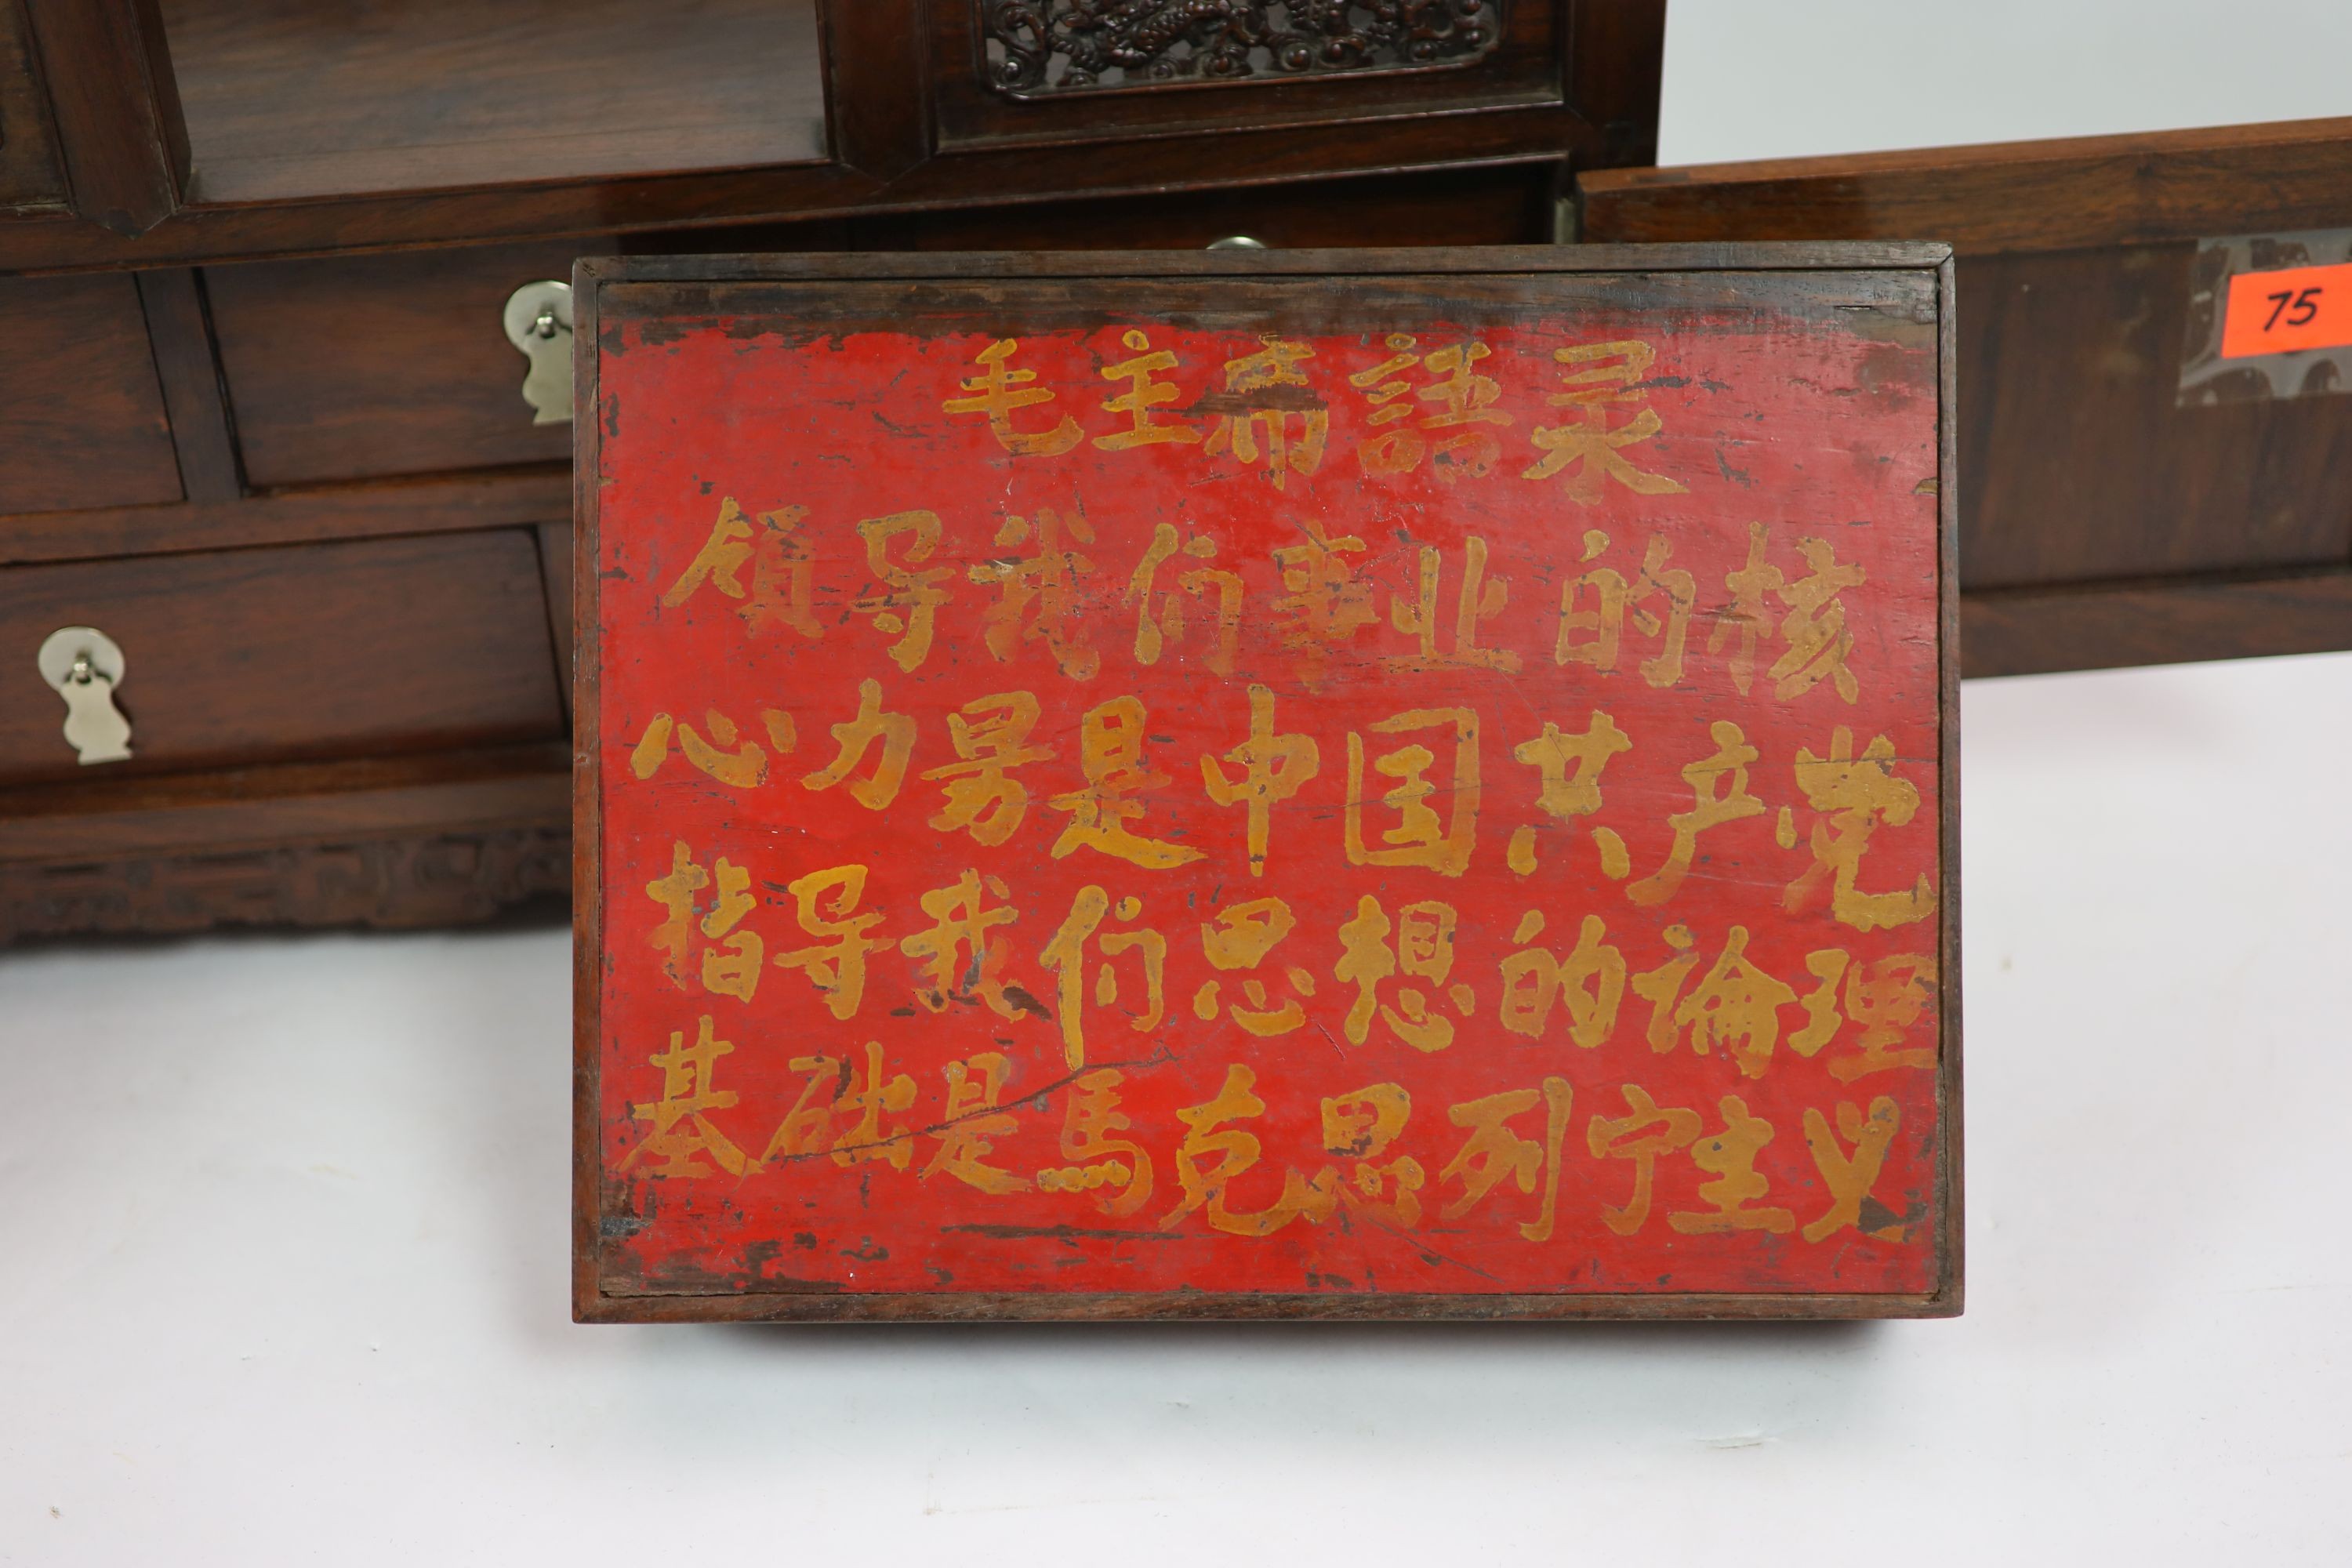 毛主席語录
領导我们事业的核
心力量是中国共产党
指导我们思想的論理
基础是馬克思列宁主义
75